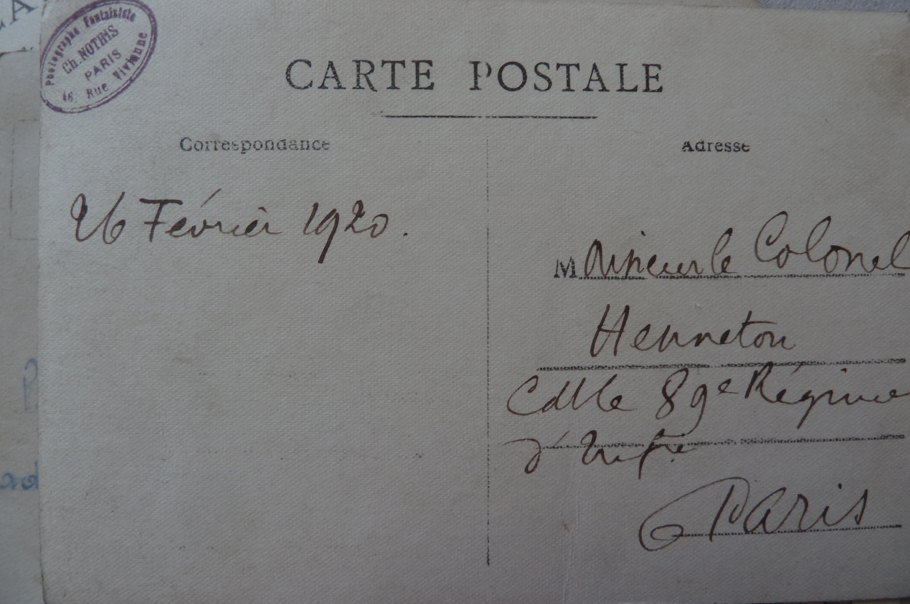 Photographe Fantaisiste
Ch. NOTINS
PARIS
46, Rue Vivienne
CARTE POSTALE
Correspondance
Adresse
26 Février 1920.
Monsieur le Colonel
Henneton
Cdt le 89e Régime
d'Infie
PARIS